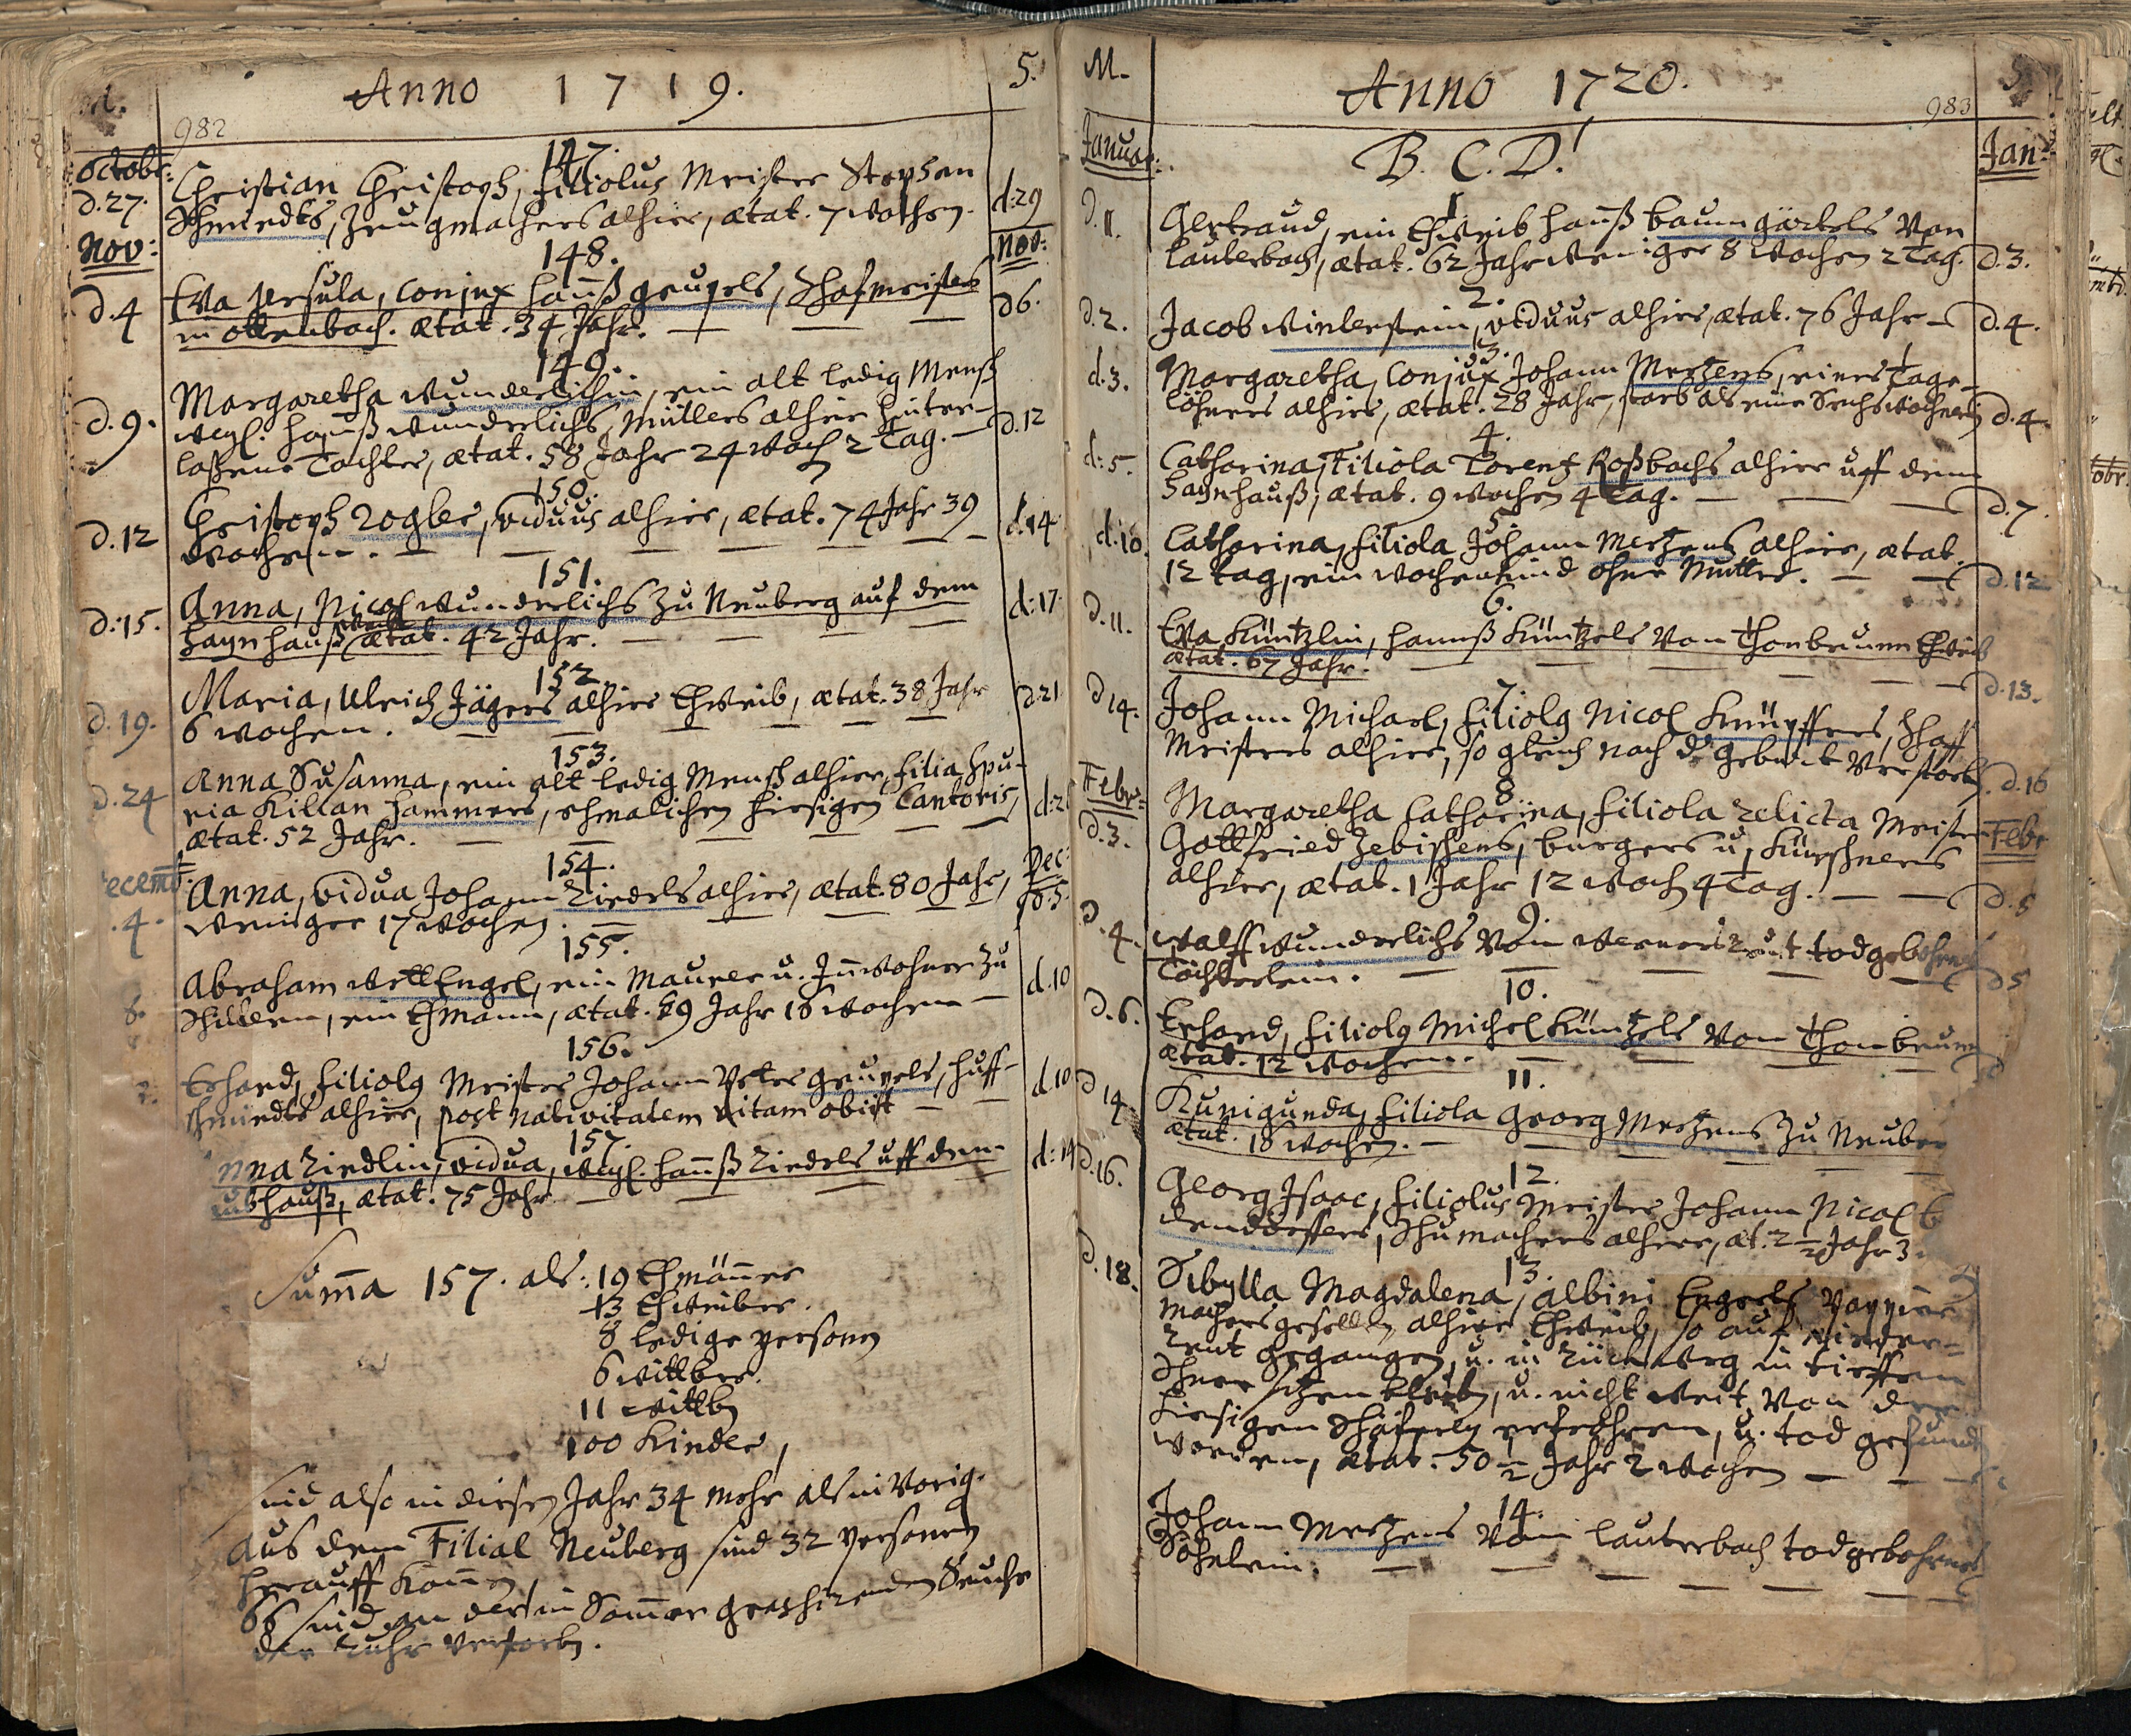 M.
Anno 1719.
S.
982
Octobr:
147.
d. 27.
Christian Christoph, filiolus Meister Stephan
Schmiedts, Zeugmachers alhier, ætat. 7 wochen.
d: 29
Nov:
148.
Nov:
d. 4
Eva Ursula, conjux Hannß Geupels, Schafmeisters
in Ottenbach. ætat. 34 Jahr.
d 6.
149.
d. 9.
Margaretha Wunderlichin, ein alt ledig Mensch
weyl. Hannß Wunderlichs, Müllers alhier hinter-
laßene Tochter, ætat. 58 Jahr 24 Woch 2 Tag.
d. 12
150.
d. 12
Christoph Vogler, viduus alhier, ætat. 74 Jahr 39
Wochen.
d. 14
151.
d: 15.
Anna, Nicol Wunderlichs zu Neuberg auf dem
Haynhauß Weib ætat. 42 Jahr.
d: 17
152.
d. 19.
Maria, Ulrich Jägers alhier Ehweib, ætat. 38 Jahr
6 wochen.
d. 21
153.
d. 24
Anna Susanna, ein alt ledig Mensch alhier, filia spu-
ria Kilian Hammers, ehmalichen hiesigen Cantoris,
ætat. 52 Jahr.
154.
ecemb:
Dec:
. 4.
Anna, vidua Johann Riedels alhier, ætat. 80 Jahr,
weniger 17 Wochen.
d. 5.
155.
8.
Abraham Wettengel, ein Maurer u. Inwohner zu
Schildern, ein Ehmann, ætat. 89 Jahr 18 wochen
d. 10
156.
Erhard, filiolg Meister Johann Peter Geupels, Huff-
schmiedts alhier, post nativitatem vitam obiit
d. 10
157.
nna Riedlin, vidua, weyl. Hannß Riedels uff dem
haußs, ætat. 75 Jahr
d: 14
Suma 157. als: 19 Ehmänner
13 Ehweiber.
8 ledige personen
6 wittber.
11 wittben
100 Kinder,
sind also in diesen Jahr 34 mehr als in vorig.
Aus dem Filial Neuberg sind 32 personen
herauff komen
66 sind an der im Sommer grashirenden Seuche
der Ruhr verstorben.
M.
Anno 1720.
S.
983
Januar:
B. C. D!
Jan:
1
d. 11.
Gertraud, ein Ehweib Hannß Baumgärtels von
Lauterbach, ætat. 62 Jahr weniger 8 Wochen 2 Tag.
d. 3.
2.
d. 2.
Jacob Winterstein, viduus alhier, ætat. 76 Jahr
d. 4.
3.
d. 3.
Margaretha, Conjux Johann Mertzens, eines Tage-
löhners alhier, ætat. 28 Jahr, starb als eine Sechswöchnerin
d. 4.
4.
d: 5.
Catharina, Filiola Lorentz Roßbachs alhier uff dem
Haynhauß, ætat. 9 Wochen 4 Tag.
d. 7.
5.
d: 10.
Catharina, filiola Johann Mertzens alhier, ætat.
12 tag, ein Wochenkind ohne Mutter.
d. 12
6.
d. 11.
Eva Küntzlin, Hannß Küntzels von Thonbrunn Ehweib
ætat. 67 Jahr.
d. 13.
7.
d 14.
Johann Michael, filiolg Nicol Knüpffers, Schaff
Meisters alhier, so gleich nach der geburt verstorben.
d. 16
8
Febr:
Febr
d. 3.
Margaretha Catharina, filiola relicta Meister
Gottfried Zebischens, burgers u. Kürschners
alhier, ætat. 1 Jahr 12 Woch 4 Tag.
d. 5
9.
d. 4.
Wolff Wunderlichs von Wernersreut todgebohrnes
Töchterlein.
d 5
10.
d. 6.
Erhard, filiolg Michel Küntzels von Thonbrunn
ætat. 12 Wochen.
d
11.
d 14
Kunigunda, filiola Georg Mertzens zu Neuber
ætat. 18 Wochen.
12.
d. 16.
Georg Isaac, filiolus Meister Johann Nicol E
denddeffers, Schumachers alhier, æt. 2 1/2 Jahr 3
13.
d. 18.
Sibylla Magdalena, Albini Engels Pappier
machers gesellen alhier Ehweib, so auf Nieder-
reut gegangen, u. in Rückweg in tieffen
Schnee sitzen blieben, u. nicht weit von der
hiesigen Schäferey erfrohren, u. tod gefunden
worden, ætat. 50 1/2 Jahr 2 Wochen
14.
Johann Mertzens von Lauterbach todgebohrnes
Söhnlein.